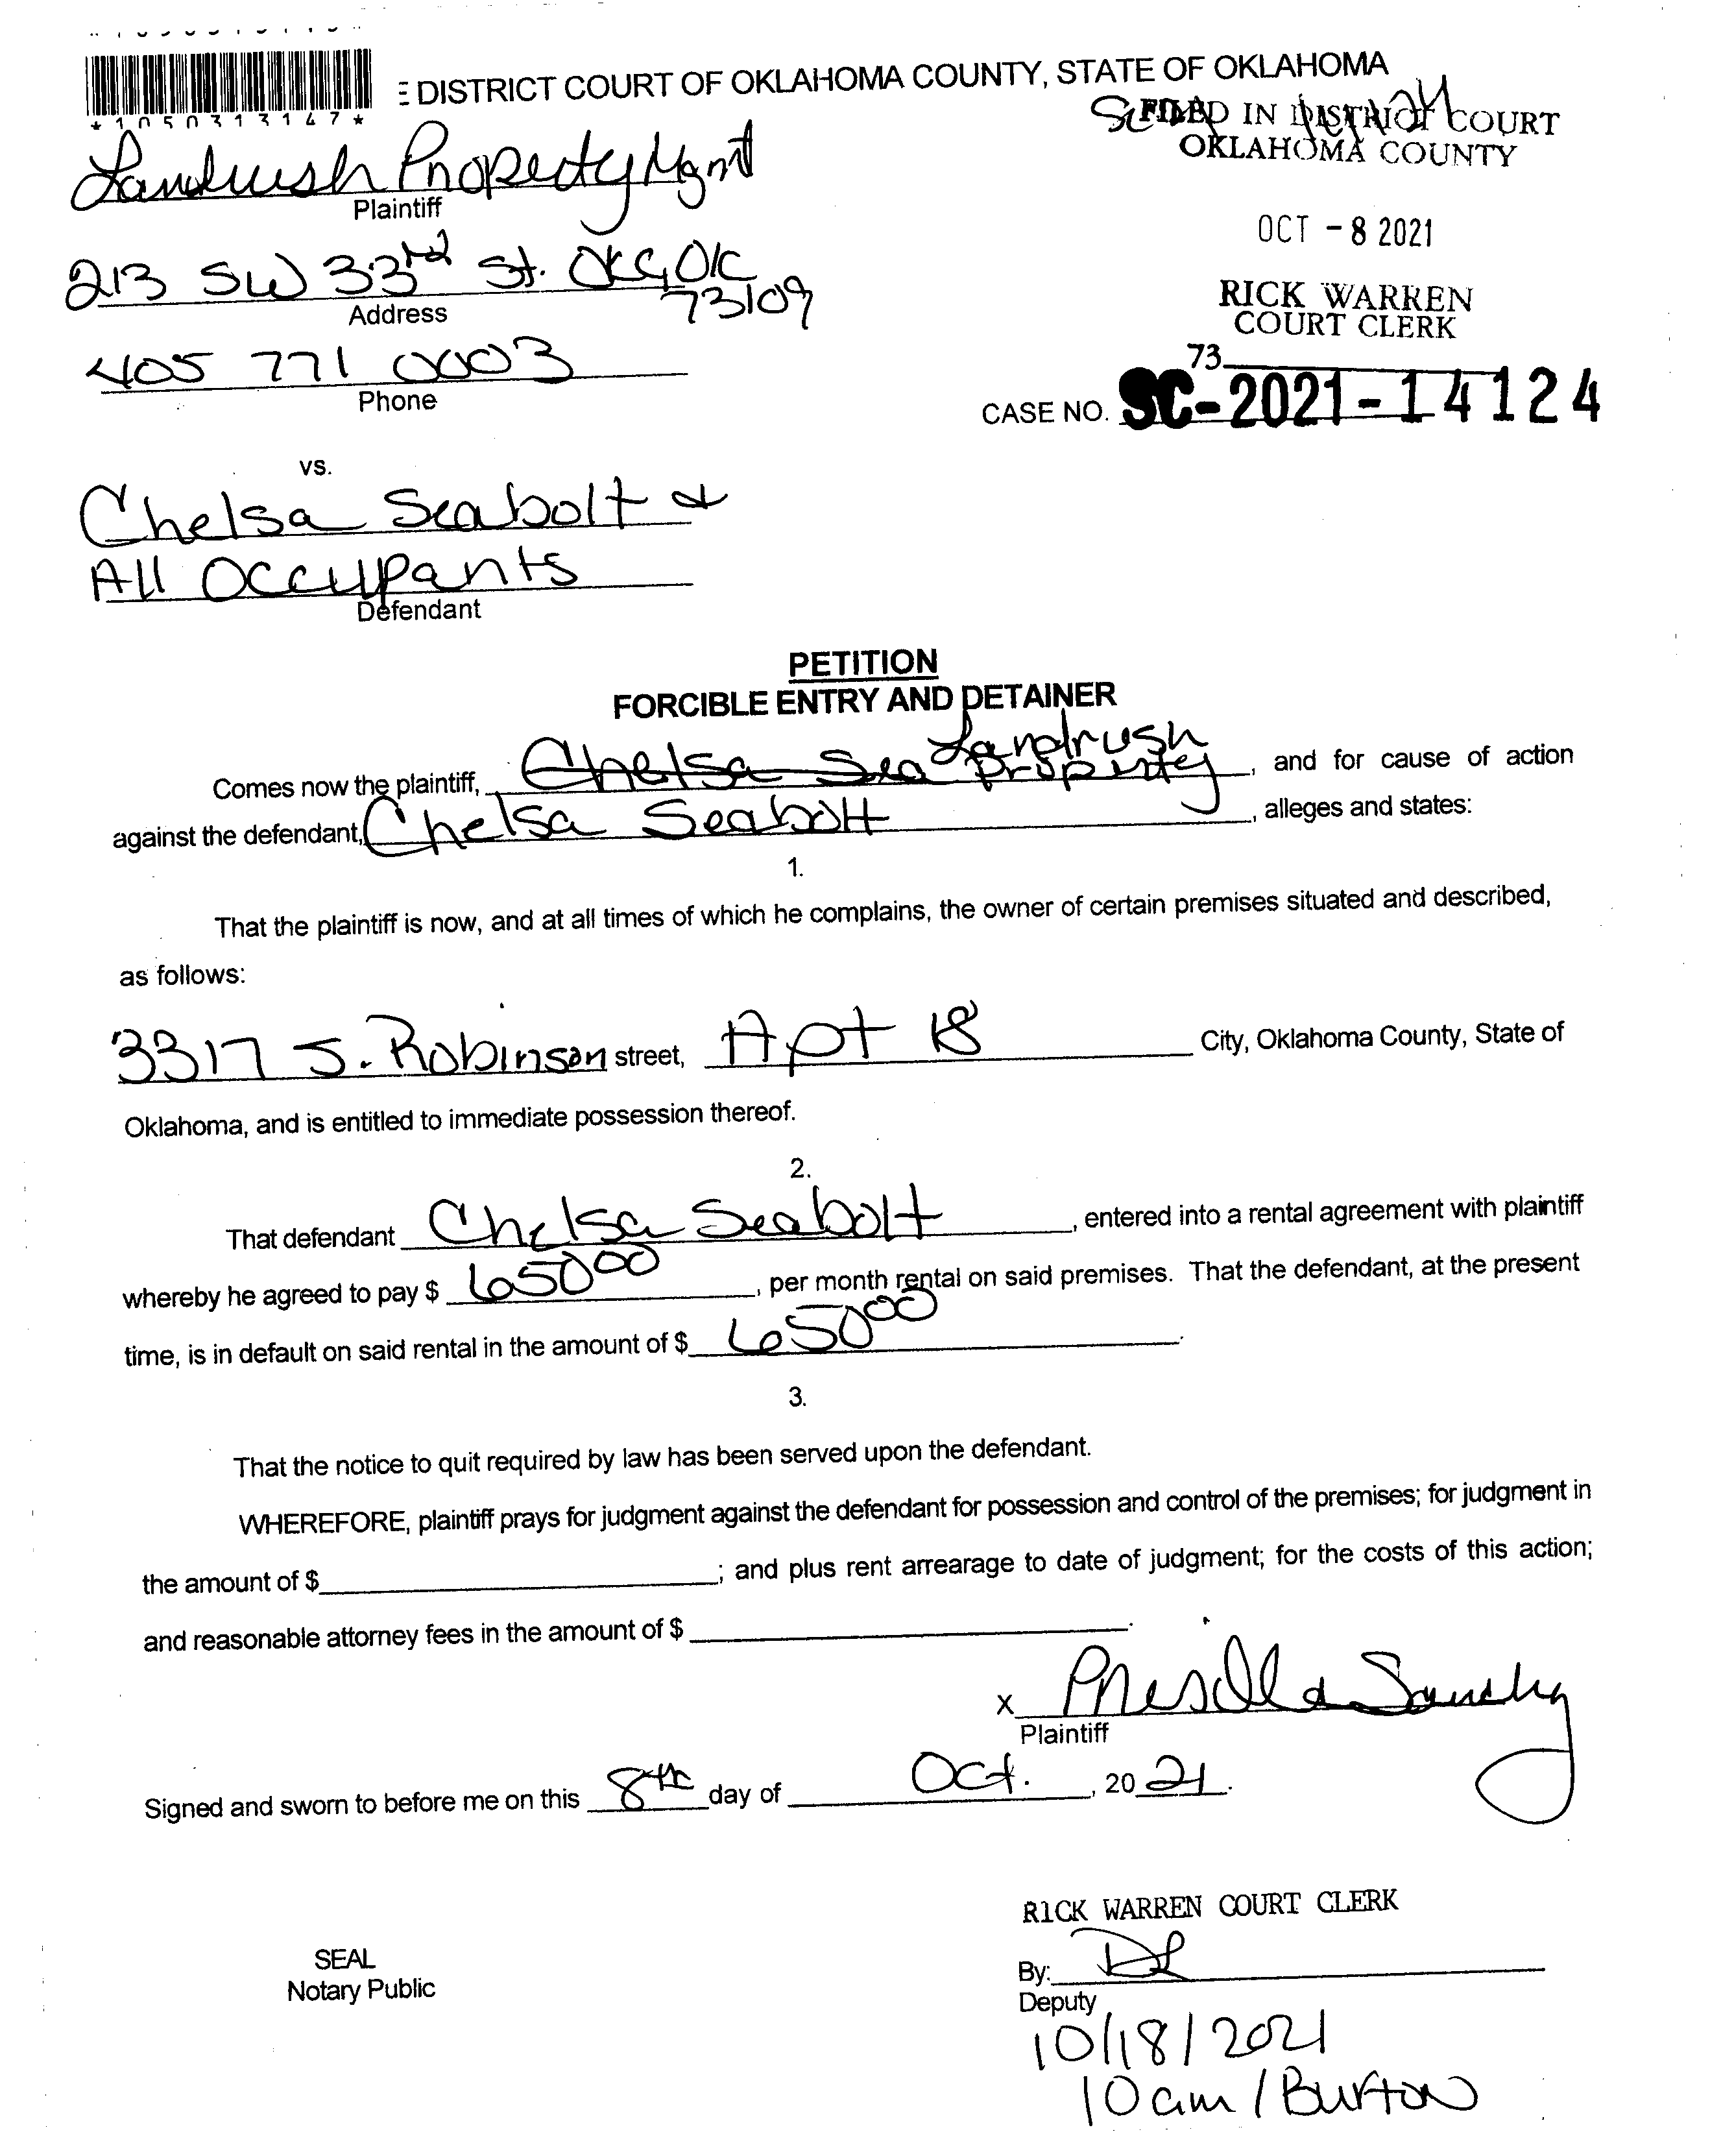 *1050313147*
E DISTRICT COURT OF OKLAHOMA COUNTY, STATE OF OKLAHOMA
FILED IN DISTRICT COURT
OKLAHOMA COUNTY
Landrush Property Mgmt
Plaintiff
OCT - 8 2021
213 SW 33rd St. OKC, OK
73109
Address
RICK WARREN
COURT CLERK
405 771 0003
Phone
73
CASE NO. SC-2021-14124
vs.
Chelsa Seabolt &
All Occupants
Defendant
PETITION
FORCIBLE ENTRY AND DETAINER
Landrush
Comes now the plaintiff, Chelsa Sea Property, and for cause of action
against the defendant, Chelsa Seabolt, alleges and states:
1.
That the plaintiff is now, and at all times of which he complains, the owner of certain premises situated and described,
as follows:
3317 S. Robinson street, Apt 18 City, Oklahoma County, State of
Oklahoma, and is entitled to immediate possession thereof.
2.
That defendant Chelsa Seabolt, entered into a rental agreement with plaintiff
whereby he agreed to pay $ 650 00, per month rental on said premises. That the defendant, at the present
time, is in default on said rental in the amount of $ 650 00.
3.
That the notice to quit required by law has been served upon the defendant.
WHEREFORE, plaintiff prays for judgment against the defendant for possession and control of the premises; for judgment in
the amount of $; and plus rent arrearage to date of judgment; for the costs of this action;
and reasonable attorney fees in the amount of $.
X Priscilla
Plaintiff
Signed and sworn to before me on this 8th day of Oct., 2021.
RICK WARREN COURT CLERK
SEAL
Notary Public
By:
Deputy
10/18/2021
10am / Burton